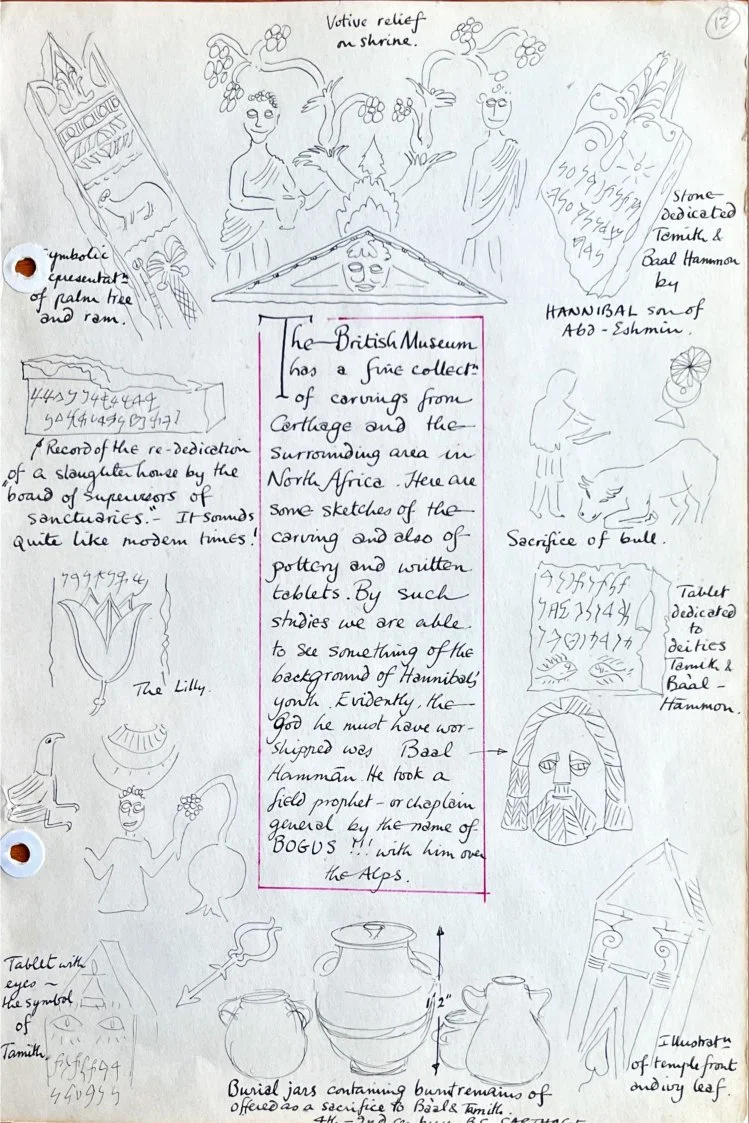 12
Votive relief
on shrine.
ymbolic
epresentatn
of palm tree
and ram.
Stone
dedicated
Tamith &
Baal Hammon
by
HANNIBAL son of
Abd-Eshmin.
Record of the re-dedication
"of a slaughter house by the
board of supervisors of
sanctuaries." - It sounds
quite like modern times!
The British Museum
has a fine collectn
of carvings from
Carthage and the
surrounding area in
North Africa. Here are
some sketches of the
carving and also of
pottery and written
tablets. By such
studies we are able
to see something of the
background of Hannibal's
youth. Evidently, the
God he must have wor-
shipped was Baal
Hammān. He took a
field prophet - or chaplain
general by the name of
BOGUS !!! with him over
the Alps.
Sacrifice of bull.
The Lilly.
Tablet
dedicated
to
deities
Tamith &
Bàal-
Hammon.
Tablet with
eyes ~
the symbol
of
Tamith.
12"
Illustratn
of temple front
and ivy leaf.
Burial jars containing burnt remains of
offered as a sacrifice to Bàal & Tamith.
4th - 2nd B.C. CARTHAGE